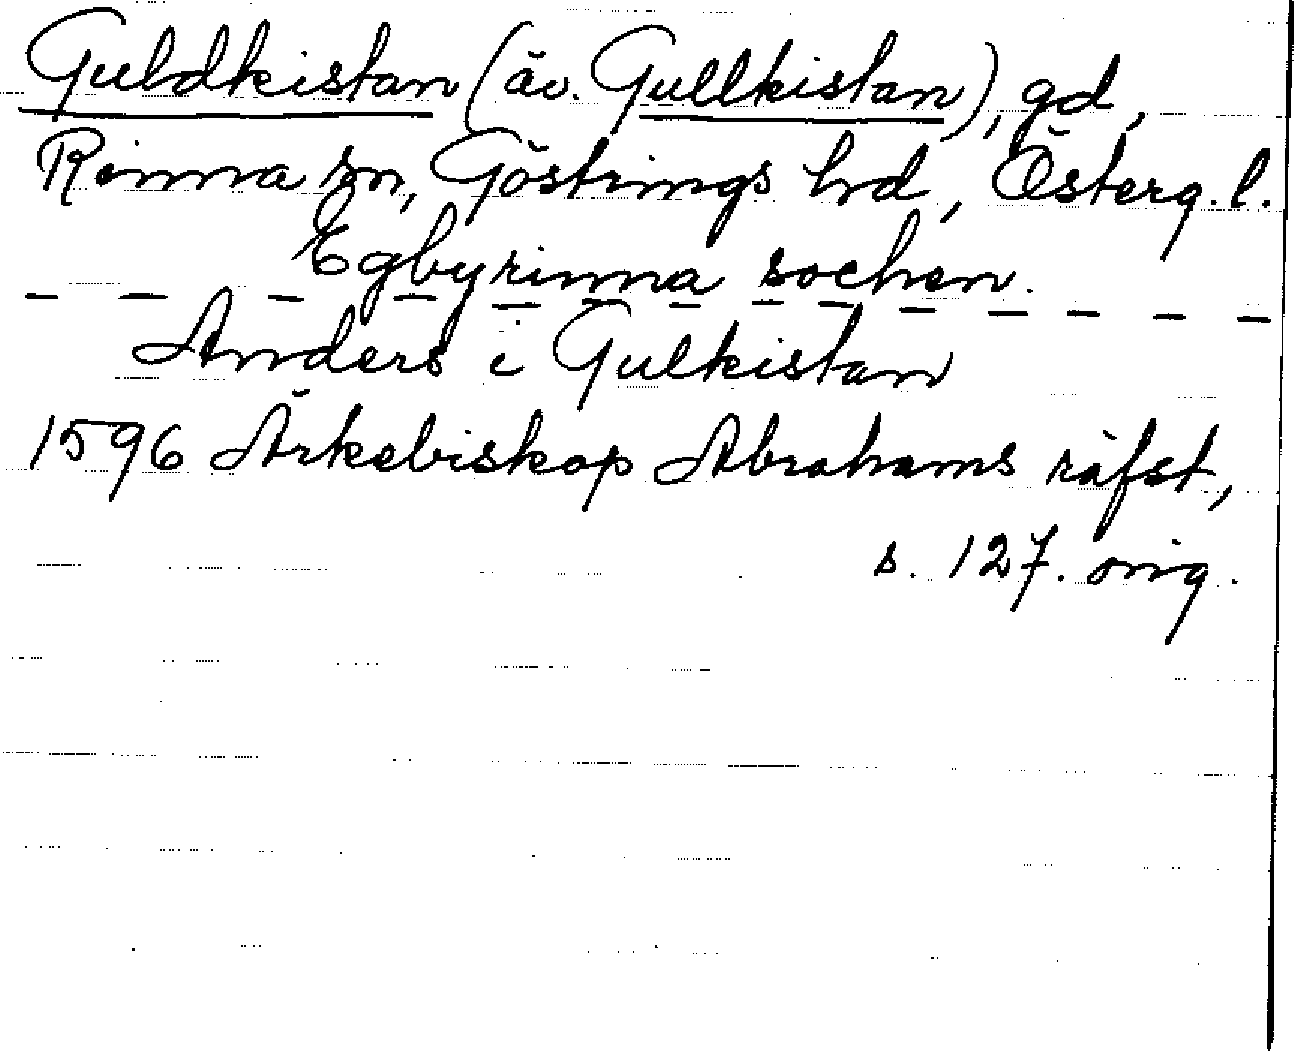 Guldkistan (äv. Gullkistan), gd,
Rinna sn, Göstrings hd, Österg. l.
Egbyrinna sochen.
Anders i Gulkistan
1596 Ärkebiskop Abrahams räfst,
s. 127. orig.